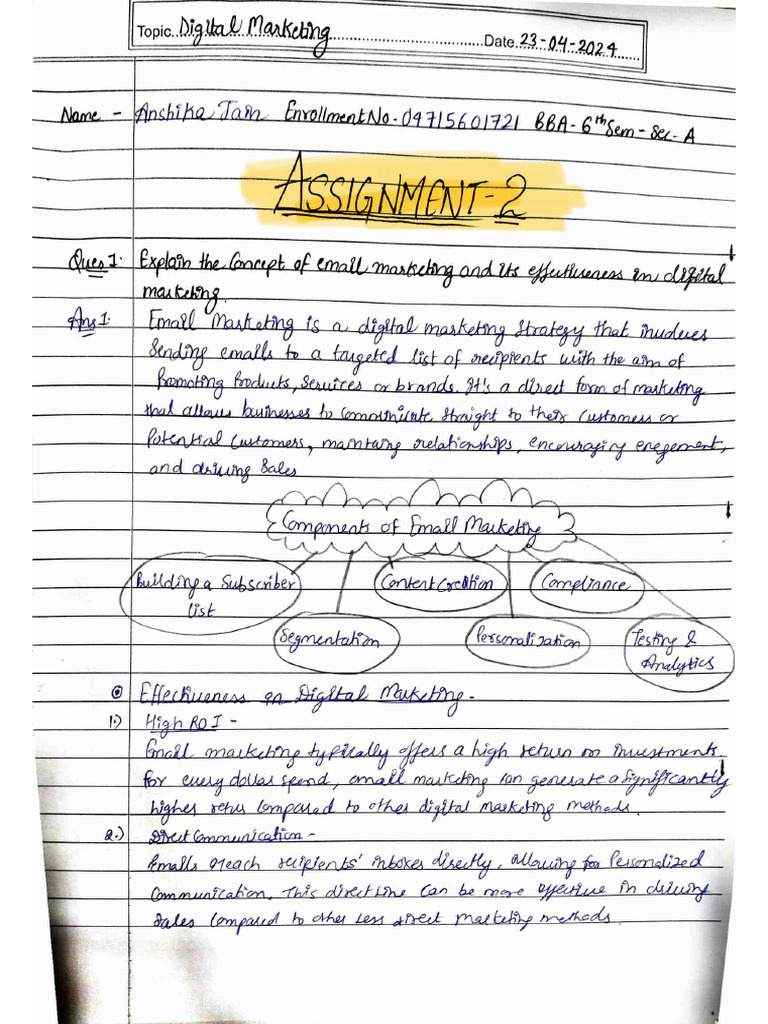 Topic. Digital Marketing Date. 23-04-2024
Name - Anshika Jain Enrollment No - 04715601721 BBA - 6th Sem - Sec - A
ASSIGNMENT-2
Ques 1. Explain the Concept of email marketing and its effectiveness in digital
marketing.
Ans 1. Email Marketing is a digital marketing strategy that involves
sending emails to a targeted list of recipients with the aim of
Promoting Products, Services or brands. It's a direct form of marketing
that allows businesses to communicate straight to their customers or
Potential Customers, maintaing relationships, encouraging enegement,
and driving sales
Components of Email Marketing
Building a Subscriber
list
Content Creation
Compliance
Segmentation
Personalization
Testing &
Analytics
Effectiveness on Digital Marketing -
1.) High ROI -
Email marketing typically offers a high return on investments.
For every dollar spend, email marketing can generate a significantly
higher retur compared to other digital marketing methods.
2.) Direct Communication -
Emails reach recipients' inboxes directly, allowing for Personalized
Communication. This direct line can be more effective in driving
sales compared to other less direct marketing methods.